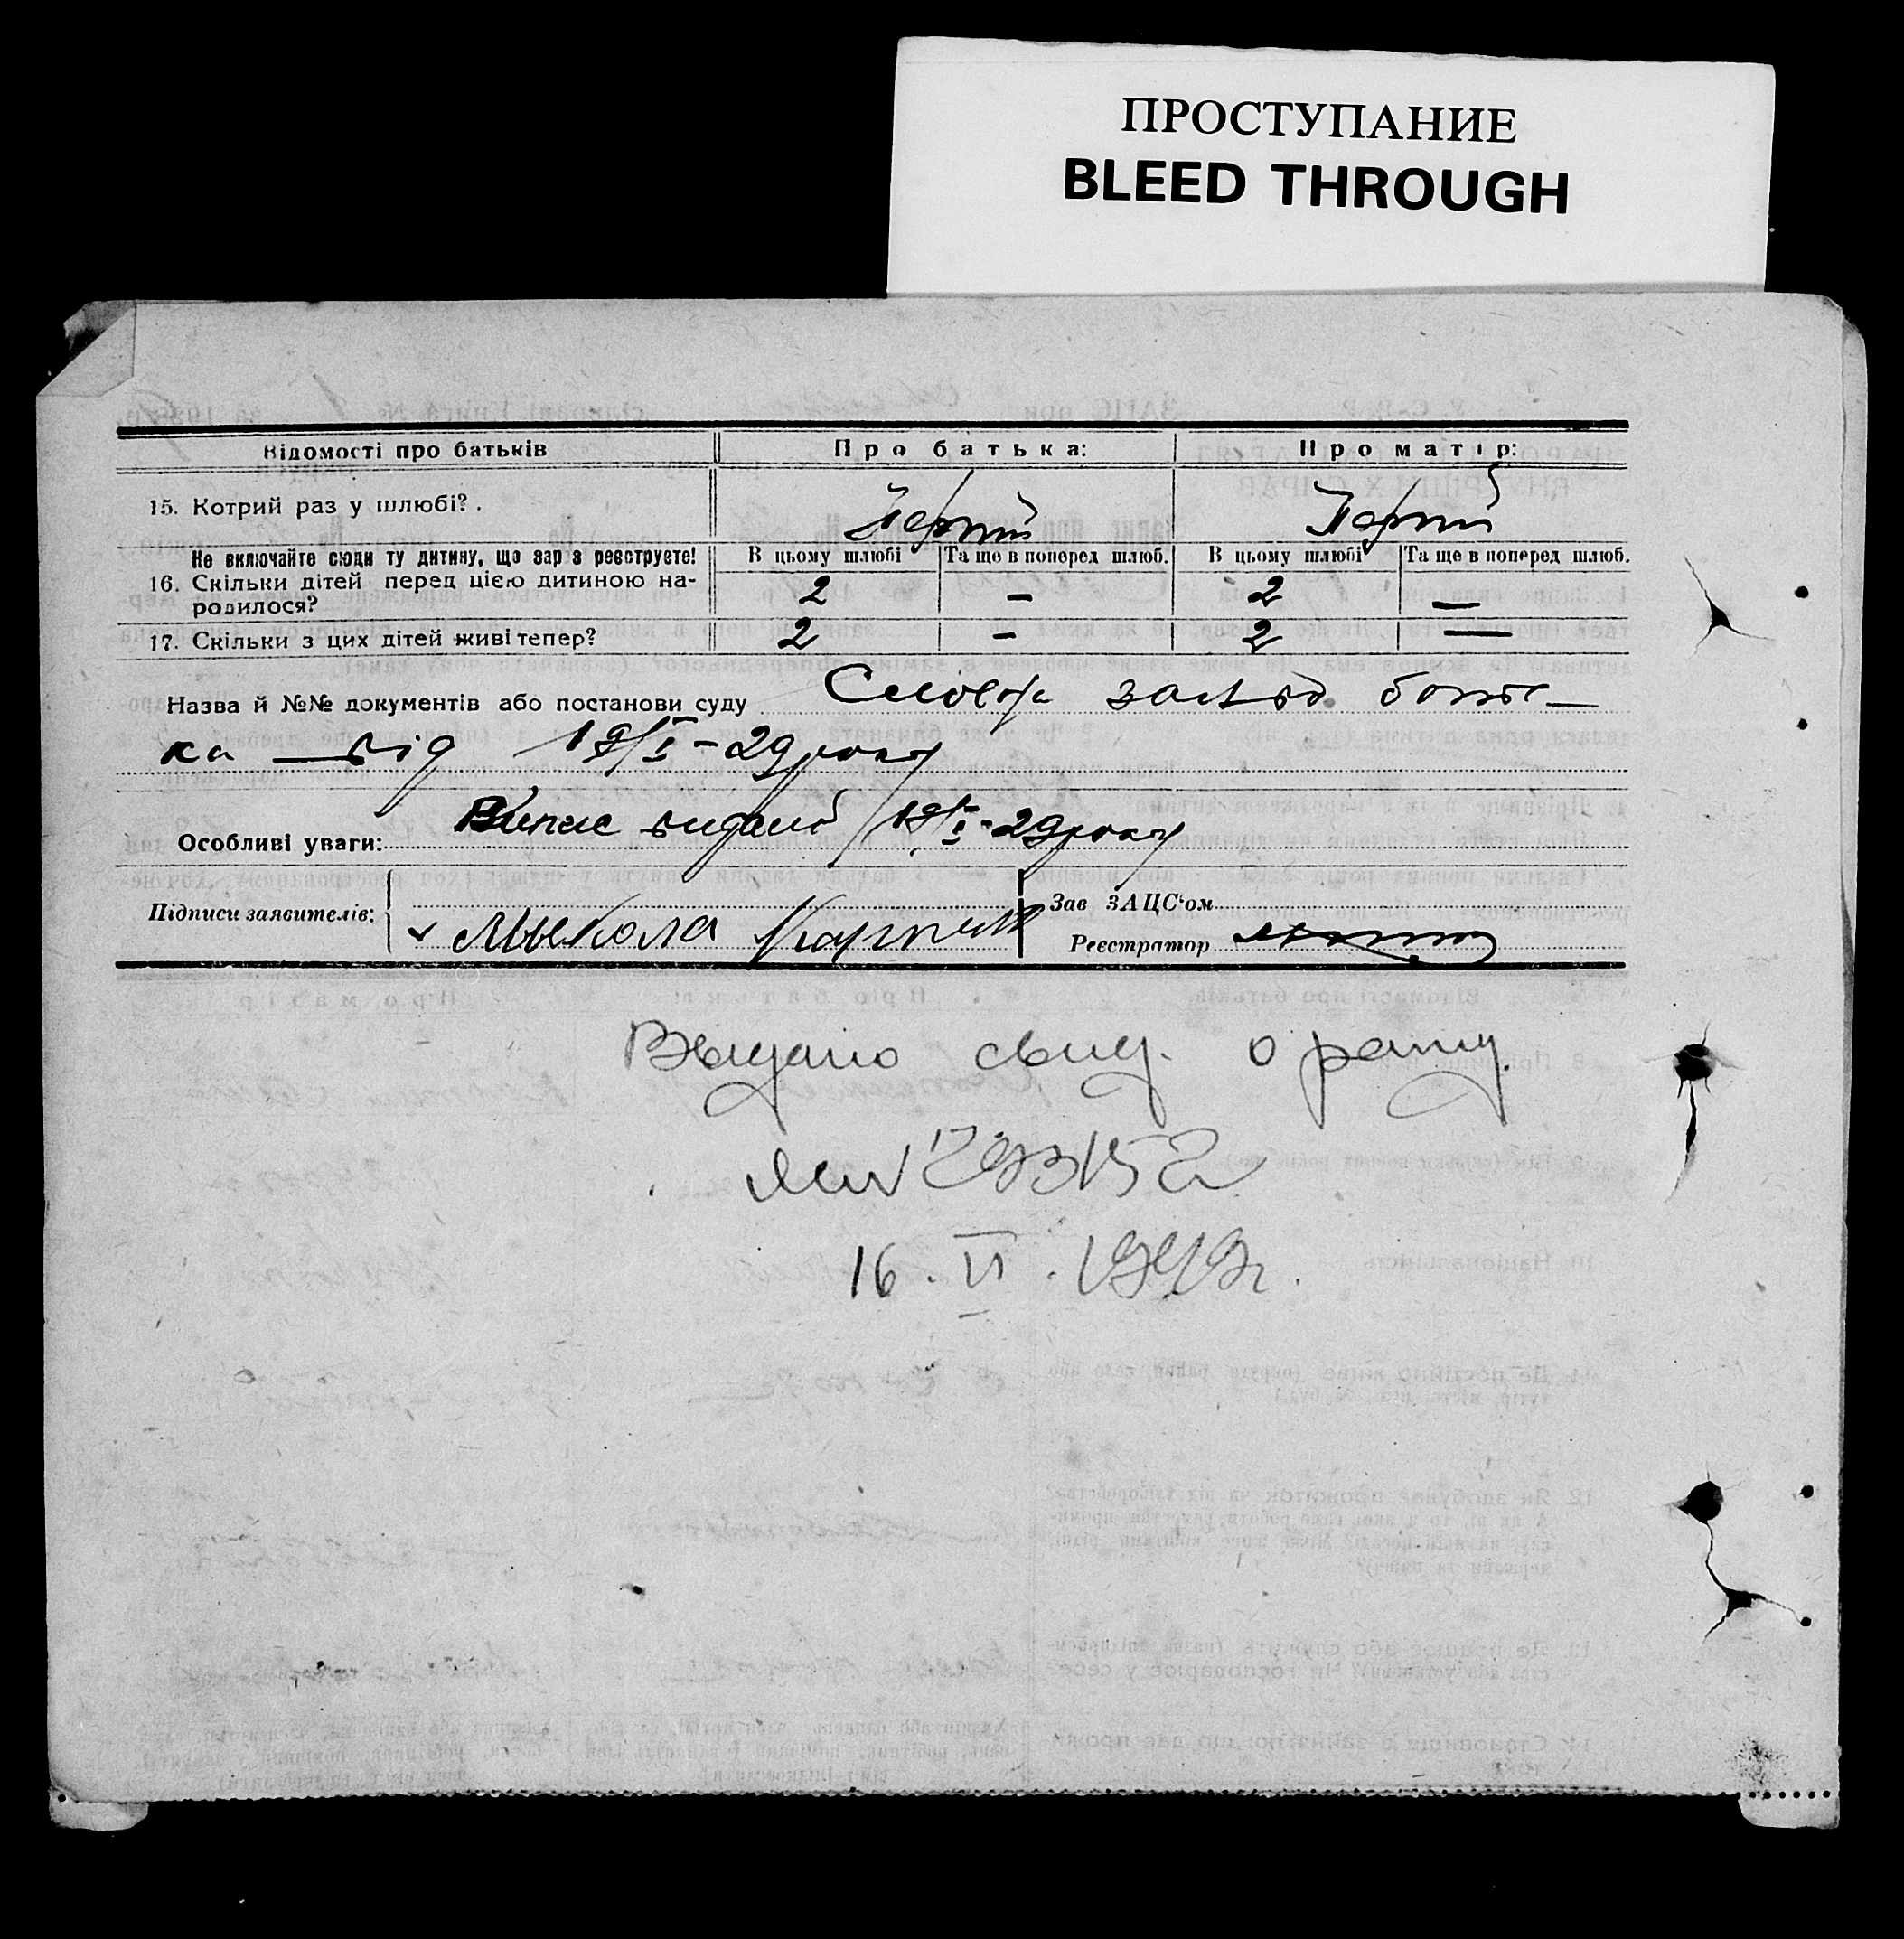 ПРОСТУПАНИЕ
BLEED THROUGH
Відомості про батьків
Про батька:
Про матір:
15. Котрий раз у шлюбі?.
Перший
Перший
Не включайте сюди ту дитину, що зар з реєструєте!
В цьому шлюбі
Та ще в поперед шлюб.
В цьому шлюбі
Та ще в поперед шлюб.
16. Скільки дітей перед цією дитиною на-
родилося?
2
—
2
—
17. Скільки з цих дітей живі тепер?
2
—
2
—
Назва й №№ документів або постанови суду Словесн заявa бать-
ка — від 19/I-29 року
Особливі уваги: Випис виданий 19/I-29 року
Підписи заявителів:
Мыкола
Зав ЗАЦС‘ом
Реєстратор
Выдано свид. о рожд.
№ 293152
16. VI. 1949г.